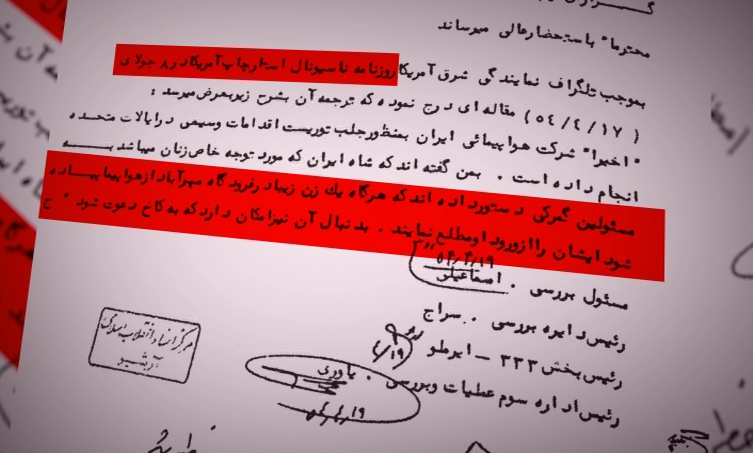 محترما" باستحضارعالی میرساند
بموجب تلگراف نمایندگی شرق آمریکا روزنامه ناسیونال استارچاپ آمریکا در ۸ جولای
( ٥٤/٤/١٧ ) مقاله ای درج نموده که ترجمه آن بشرح زیربعرض میرسد :
" اخیرا" شرکت هواپیمائی ایران بمنظورجلب توریست اقدامات وسیعی درایالات متحده
انجام داده است . بمن گفته اند که شاه ایران که مورد توجه خاص زنان میباشد به
مسئولین گمرکی دستورداده اند که هرگاه یك زن زیبا درفرودگاه مهرآباد ازهواپیما پیاده
شود ایشان را ازورود او مطلع نمایند . بدنبال آن نیزامکان دارد که به کاخ دعوت شود " ج
مسئول بررسی . اسماعیلی ٥٤/٤/١٩
رئیس دایره بررسی . سراج
رئیس بخش ٣٣٣ – ایرملو ٤/١٩
رئیس اداره سوم عملیات وبررسی . یاوری
٤/٤/١٩
مرکز اسناد انقلاب اسلامی
آرشیو